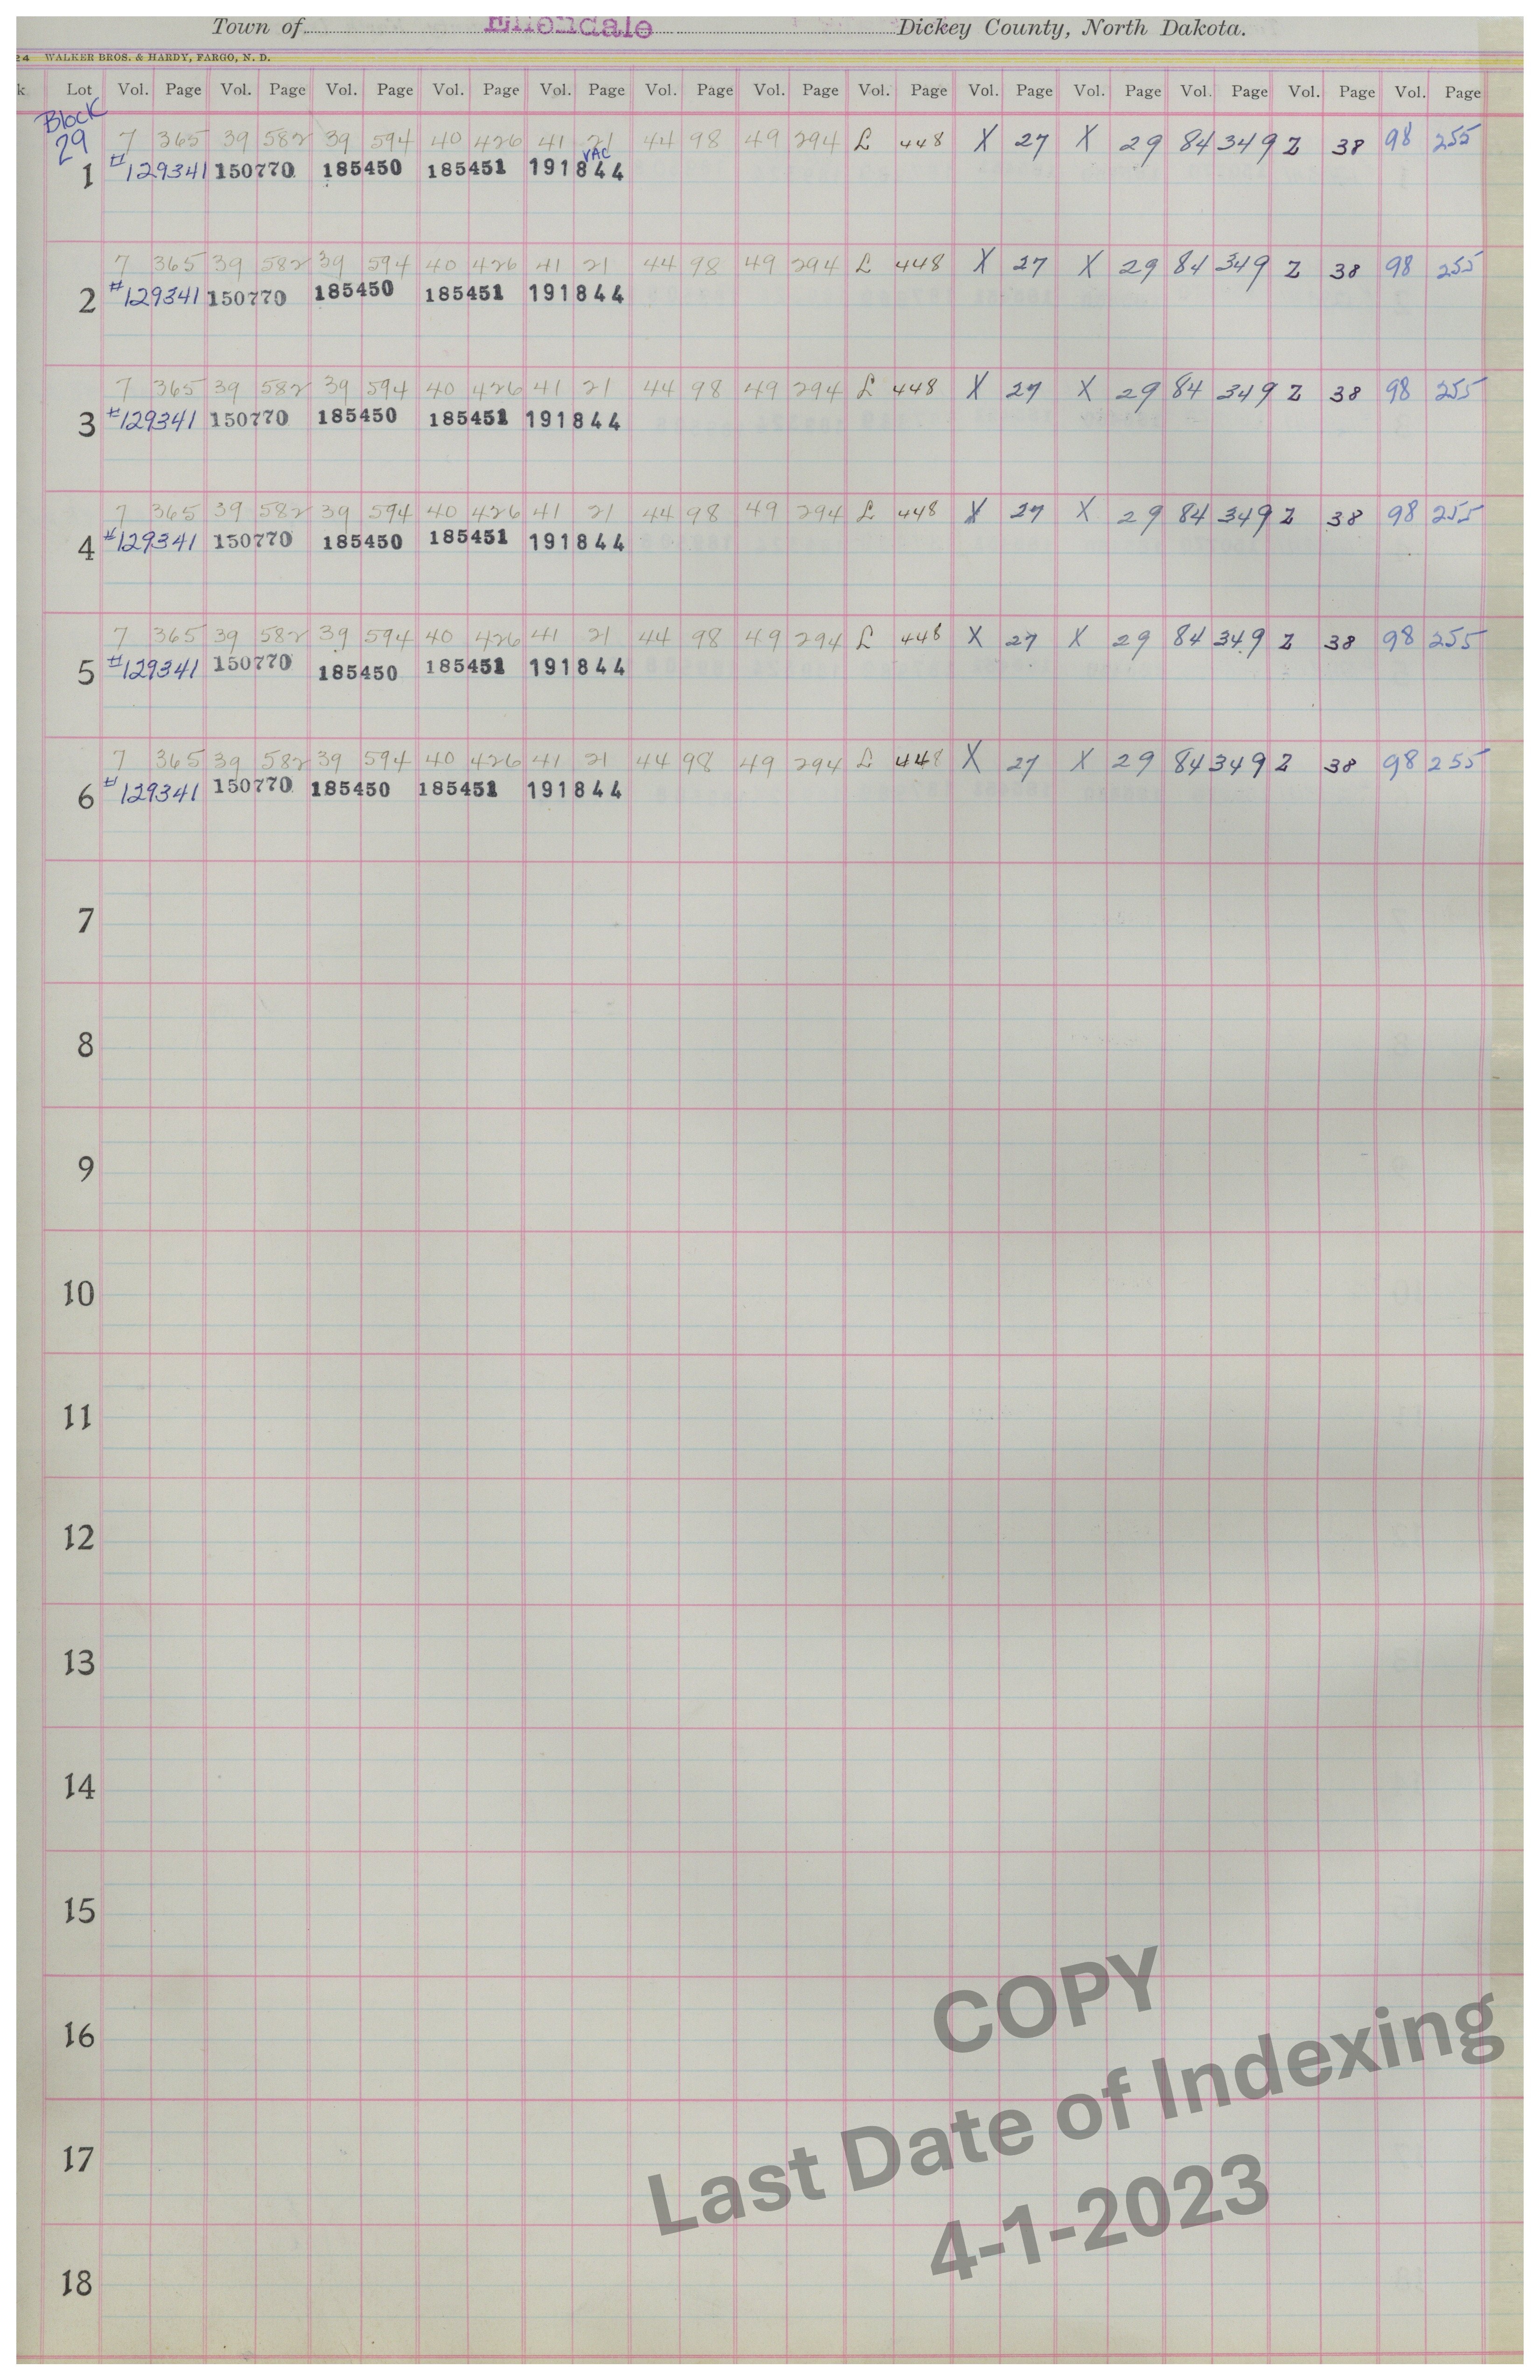 Town of Ellendale Dickey County, North Dakota.
24 WALKER BROS. & HARDY, FARGO, N. D.
k Lot Vol. Page Vol. Page Vol. Page Vol. Page Vol. Page Vol. Page Vol. Page Vol. Page Vol. Page Vol. Page Vol. Page Vol. Page Vol. Page
Block
29
7 365 39 582 39 594 40 426 41 21 44 98 49 294 L 448 X 27 X 29 84 349 Z 38 98 255
VAC
1 #129341 150770 185450 185451 191844
7 365 39 582 39 594 40 426 41 21 44 98 49 294 L 448 X 27 X 29 84 349 Z 38 98 255
2 #129341 150770 185450 185451 191844
7 365 39 582 39 594 40 426 41 21 44 98 49 294 L 448 X 27 X 29 84 349 Z 38 98 255
3 #129341 150770 185450 185451 191844
7 365 39 582 39 594 40 426 41 21 44 98 49 294 L 448 X 27 X 29 84 349 Z 38 98 255
4 #129341 150770 185450 185451 191844
7 365 39 582 39 594 40 426 41 21 44 98 49 294 L 448 X 27 X 29 84 349 Z 38 98 255
5 #129341 150770 185450 185451 191844
7 365 39 582 39 594 40 426 41 21 44 98 49 294 L 448 X 27 X 29 84 349 Z 38 98 255
6 #129341 150770 185450 185451 191844
7
8
9
10
11
12
13
14
15
16
17
18
COPY
Last Date of Indexing
4-1-2023